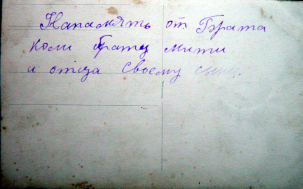 На память от Брата
Коли брату Мити
и отца своему сыну